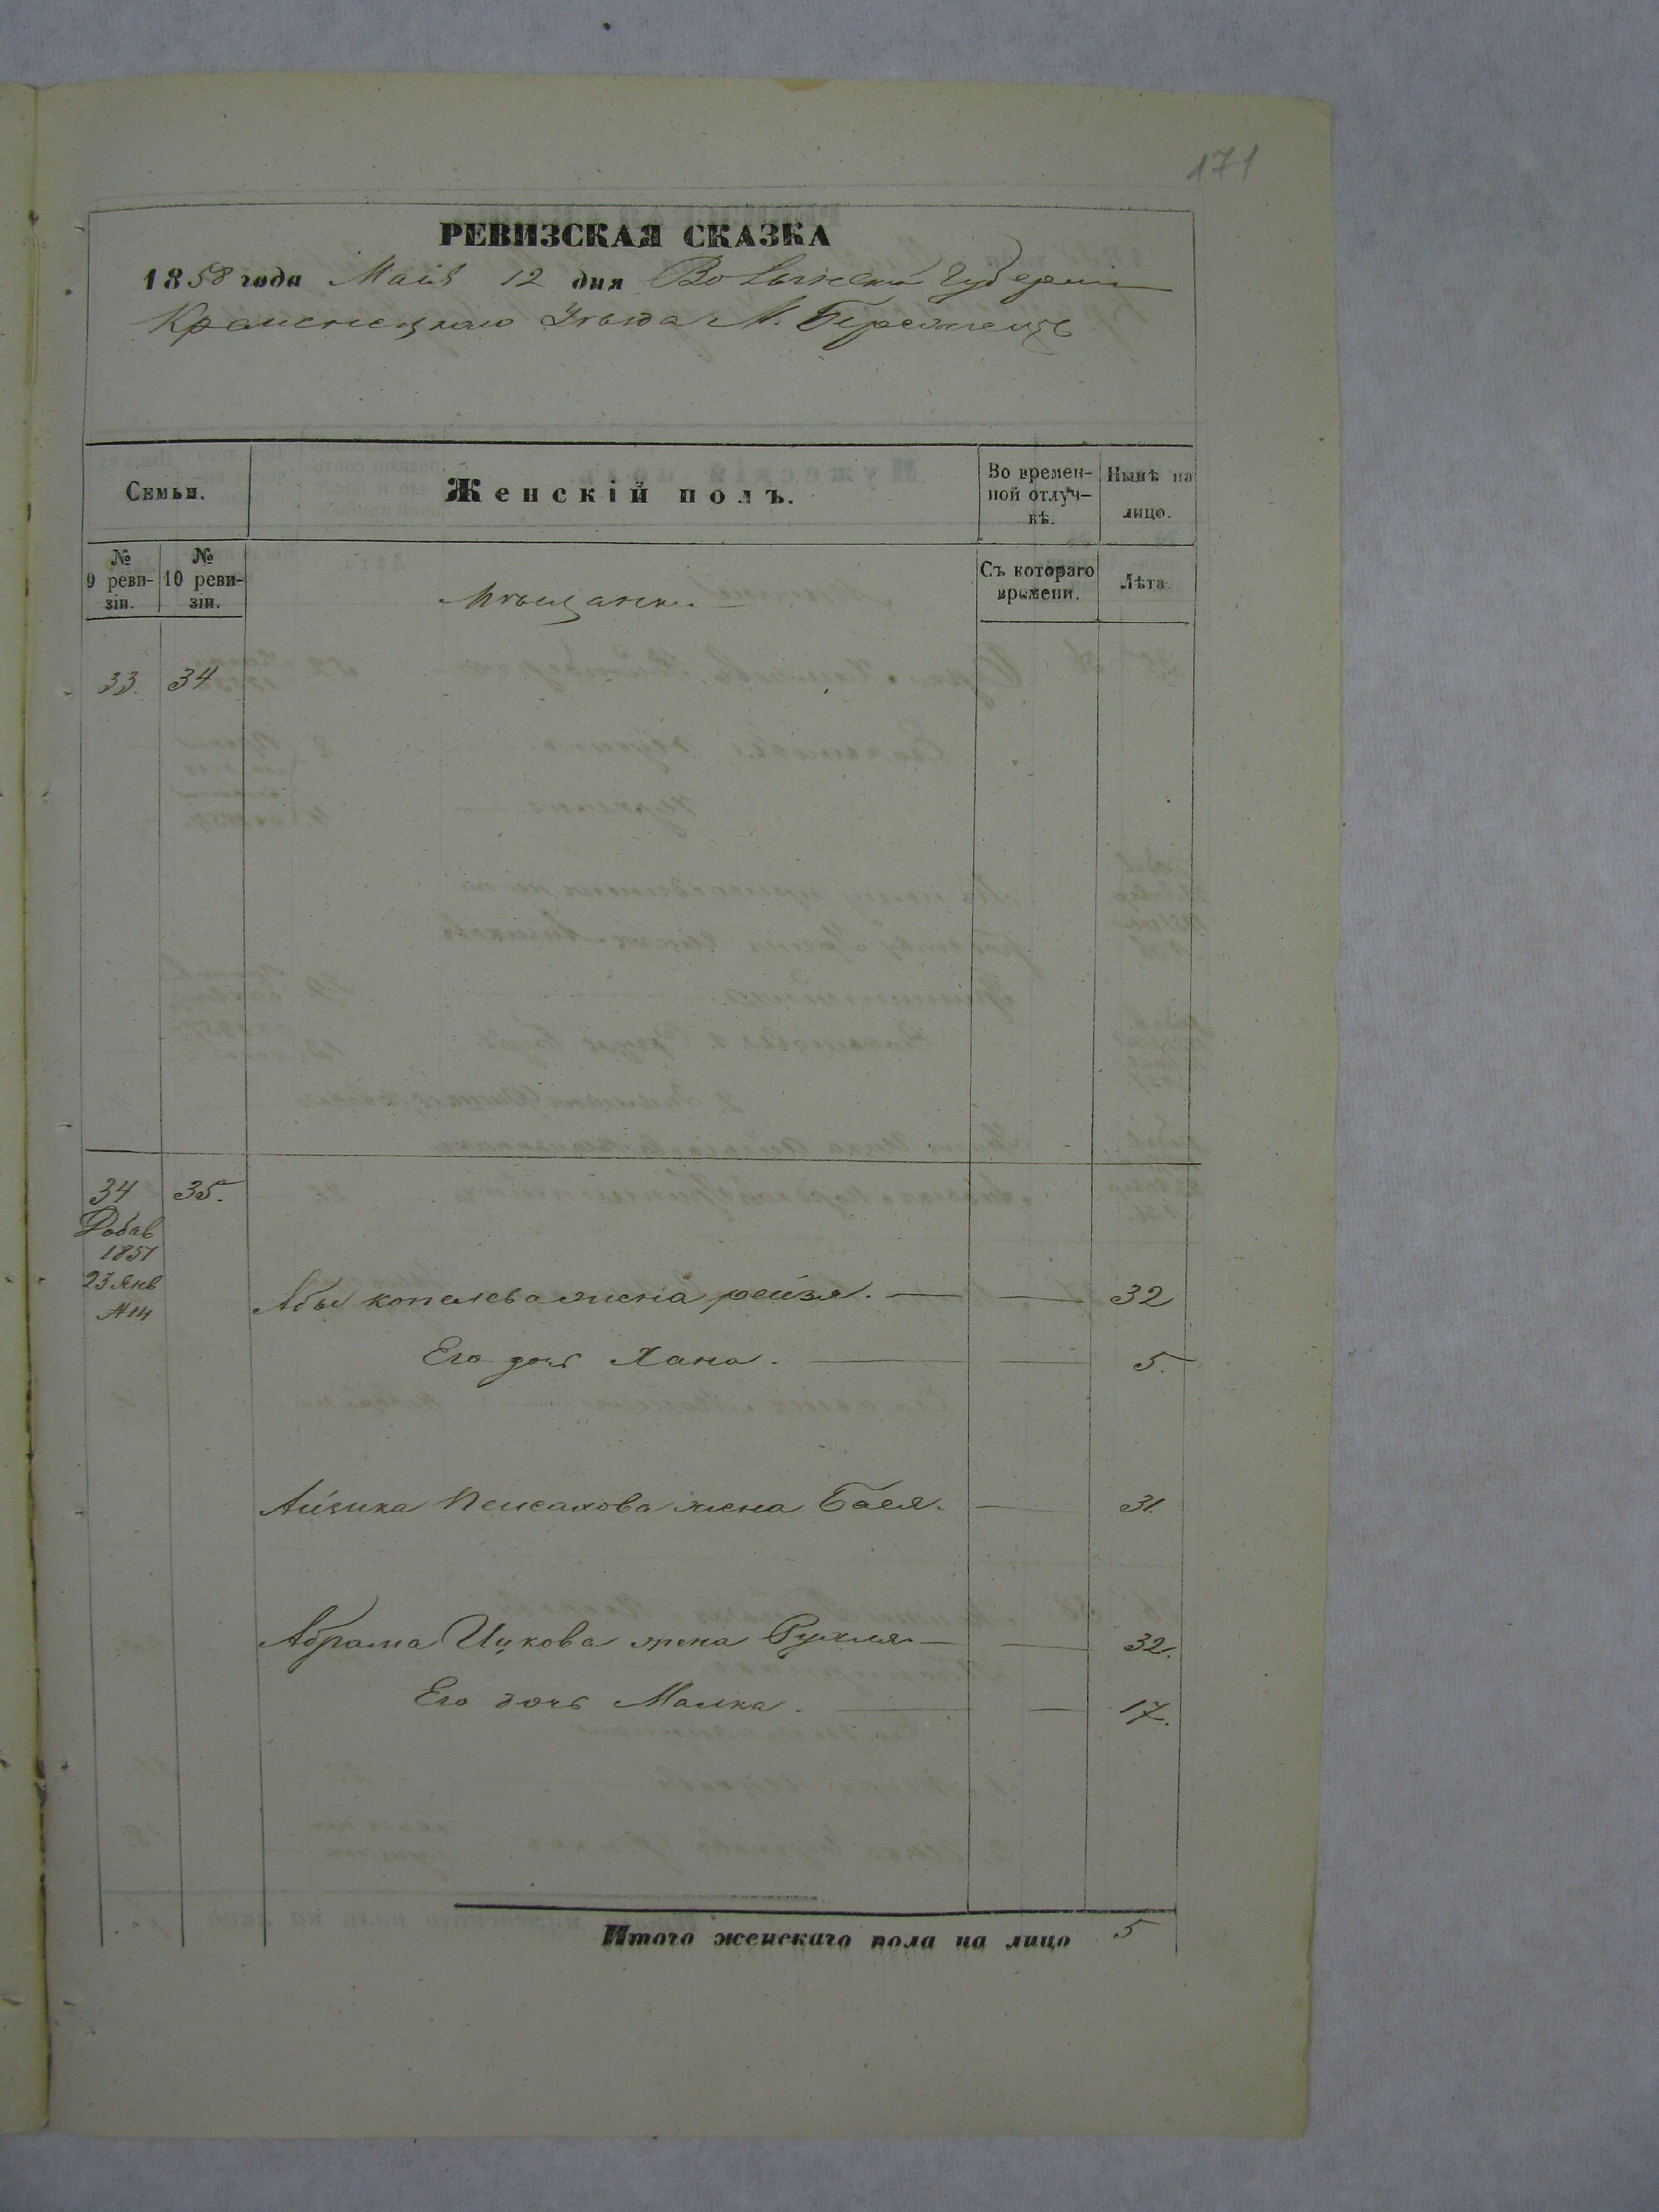 171
РЕВИЗСКАЯ СКАЗКА
1858 года Маія 12 дня Волынской Губерніи
Кременецкаго Уѣзда М. Бережецъ
Семьи.
Женскій полъ.
Во времен-
ной отлуч-
кѣ.
Нынѣ на
лицо.
№
9 реви-
зіи.
№
10 реви-
зіи.
Съ котораго
времени.
Лѣта.
Мѣщанки.
33. 34
34 35.
Добав
1851
23 Янв
№14
Абы копелева жена рейзя. — — 32
Его дочь Хана. — — 5.
Айзика Пейсахова жена Бася. — 31.
Абрама Ицкова жена Рухля — — 32.
Его дочь Малка. — — 17.
Итого женскаго пола на лицо 5